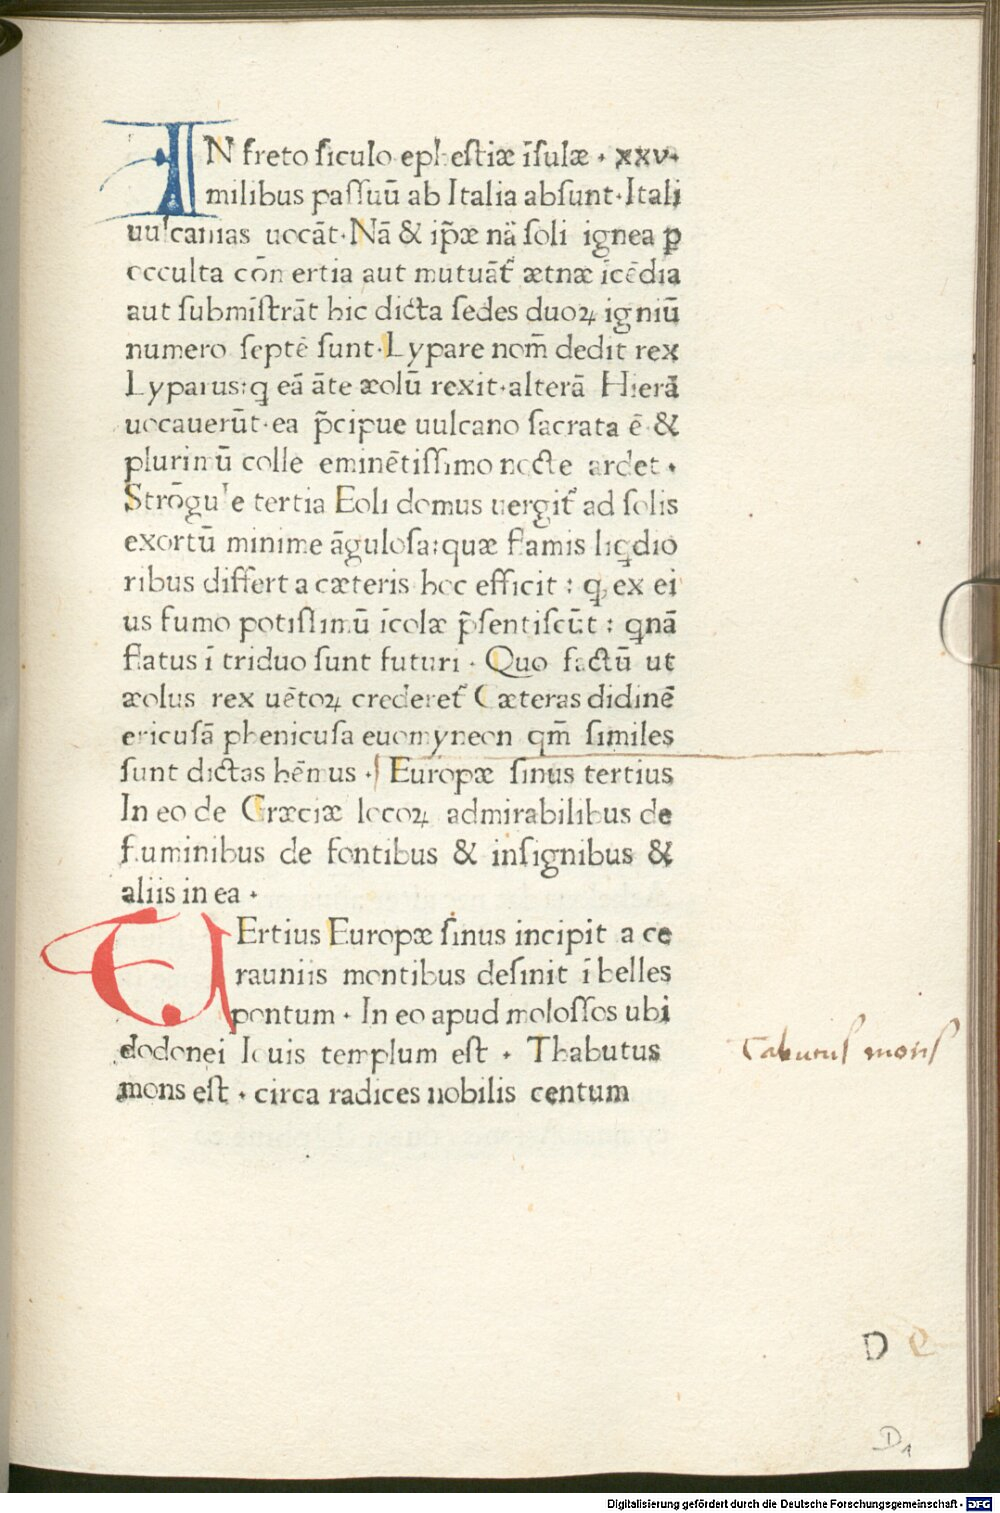 IN freto ſiculo epheſtiæ īſulæ · xxv·
milibus paſſuū ab Italia abſunt·Itali
uulcanias uocāt·Nā & ip̄æ nā ſoli ignea ꝑ
occulta cōmertia aut mutuāt᷑ ætnæ īcēdia
aut ſubmīſtrāt hic dicta ſedes duoꝝ igniū
numero ſeptē ſunt·Lypare nom̄ dedit rex
Lyparus:q eā āte æolū rexit·alterā Hierā
uocauerūt·ea p̄cipue uulcano ſacrata ē &
plurimū colle eminētiſſimo nocte ardet ·
Strōgule tertia Eoli domus uergit᷑ ad ſolis
exortū minime āguloſa:quæ flamis liqdio
ribus differt a cæteris hoc efficit : ꝙ ex ei
us fumo potiſſimū īcolæ p̄ſentiſcūt : qnā
flatus ī triduo ſunt futuri · Quo factū ut
æolus rex uētoꝝ crederet᷑ Cæteras didinē
ericuſā phenicuſa euomyneon qm̄ ſimiles
ſunt dictas hēmus · Europæ ſinus tertius
In eo de Græciæ locoꝝ admirabilibus de
fluminibus de fontibus & inſignibus &
aliis in ea ·
TErtius Europæ ſinus incipit a ce
rauniis montibus deſinit ī belles
pontum · In eo apud moloſſos ubi
dodonei Iouis templum eſt · Thabutus
mons est · circa radices nobilis centum
Tabutuſ monſ
D e
D1
Digitalisierung gefördert durch die Deutsche Forschungsgemeinschaft - DFG